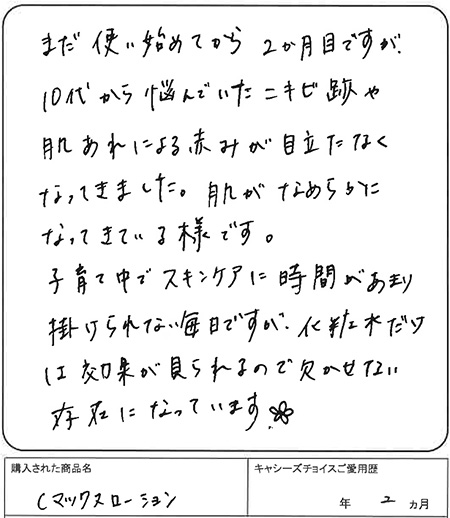 まだ使い始めてから2か月目ですが、
10代から悩んでいたニキビ跡や
肌あれによる赤みが目立たなく
なってきました。肌がなめらかに
なってきている様です。
子育て中でスキンケアに時間があまり
掛けられない毎日ですが、化粧水だけ
は効果が見られるので欠かせない
存在になっています。
購入された商品名
キャシーズチョイスご愛用歴
Cマックスローション
年 2 ヵ月